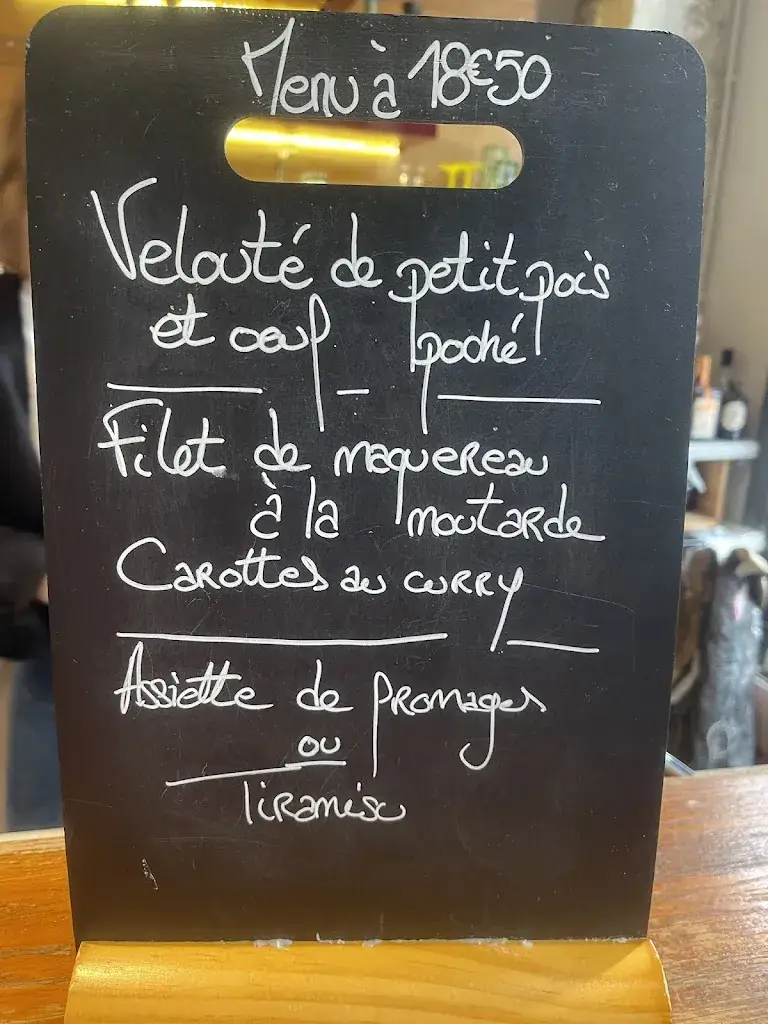 Menu à 18€50
Velouté de petit pois
et oeuf poché
Filet de maquereau
à la moutarde
Carottes au curry
Assiette de fromages
ou
Tiramisu